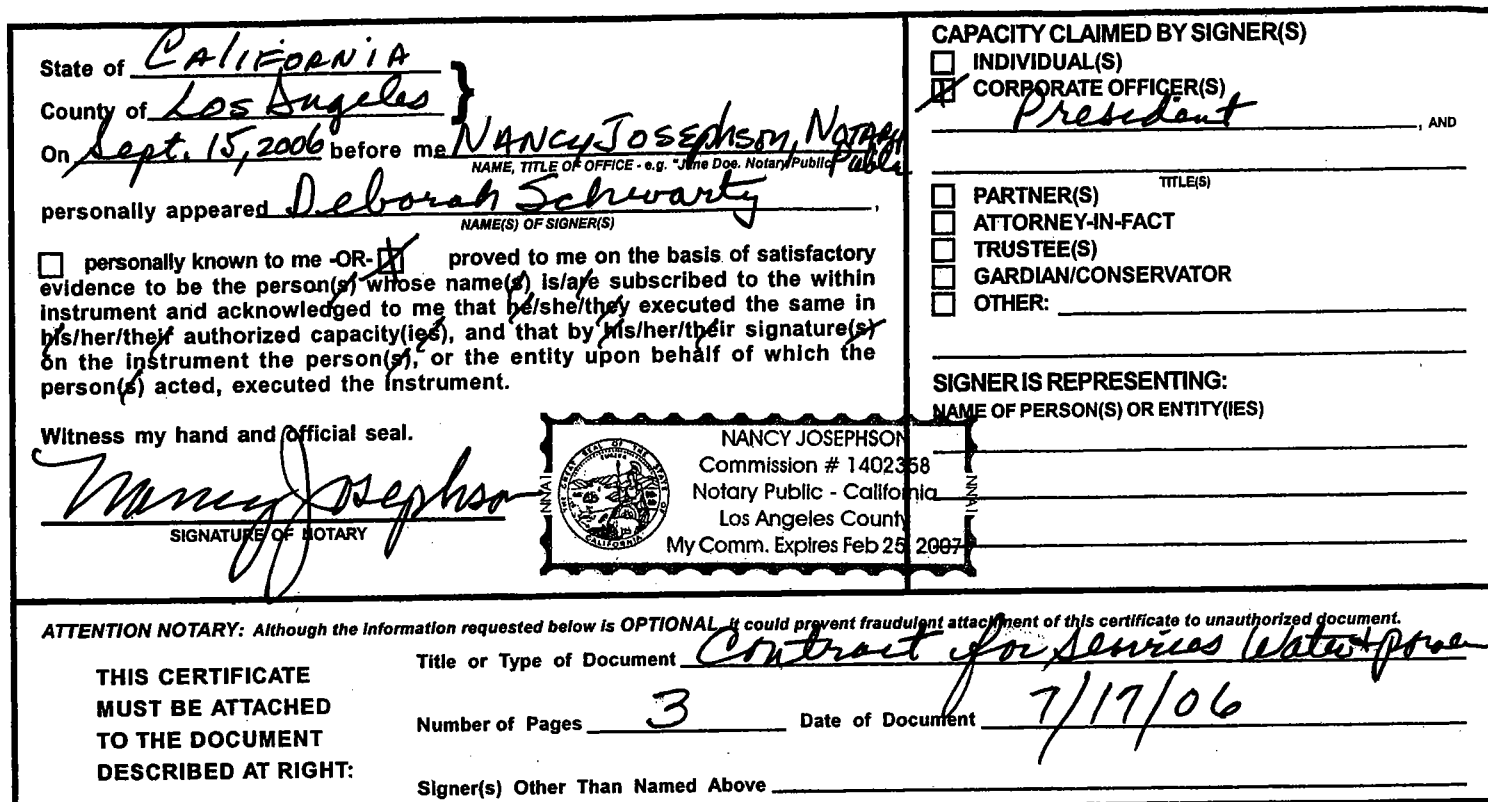 State of CALIFORNIA
County of Los Angeles
On Sept. 15, 2006 before me NANCY JOSEPHSON, NOTARY Public
NAME, TITLE OF OFFICE - e.g. "Jane Doe. Notary Public"
personally appeared Deborah Schwartz,
NAME(S) OF SIGNER(S)
personally known to me -OR- proved to me on the basis of satisfactory
evidence to be the person(s) whose name(s) is/are subscribed to the within
instrument and acknowledged to me that he/she/they executed the same in
his/her/their authorized capacity(ies), and that by his/her/their signature(s)
on the instrument the person(s), or the entity upon behalf of which the
person(s) acted, executed the instrument.
Witness my hand and official seal.
Nancy Josephson
SIGNATURE OF NOTARY
NANCY JOSEPHSON
Commission # 1402358
Notary Public - California
Los Angeles County
My Comm. Expires Feb 25, 2007
NNA1
NNA1
THE GREAT SEAL OF THE STATE OF CALIFORNIA
EUREKA
CAPACITY CLAIMED BY SIGNER(S)
INDIVIDUAL(S)
CORPORATE OFFICER(S)
President, AND
TITLE(S)
PARTNER(S)
ATTORNEY-IN-FACT
TRUSTEE(S)
GARDIAN/CONSERVATOR
OTHER:
SIGNER IS REPRESENTING:
NAME OF PERSON(S) OR ENTITY(IES)
ATTENTION NOTARY: Although the information requested below is OPTIONAL, it could prevent fraudulent attachment of this certificate to unauthorized document.
THIS CERTIFICATE
MUST BE ATTACHED
TO THE DOCUMENT
DESCRIBED AT RIGHT:
Title or Type of Document Contract for Services Water + power
Number of Pages 3 Date of Document 7/17/06
Signer(s) Other Than Named Above